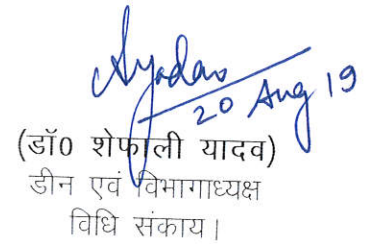 Syadav
20 Aug 19
(डॉ0 शेफाली यादव)
डीन एवं विभागाध्यक्ष
विधि संकाय।